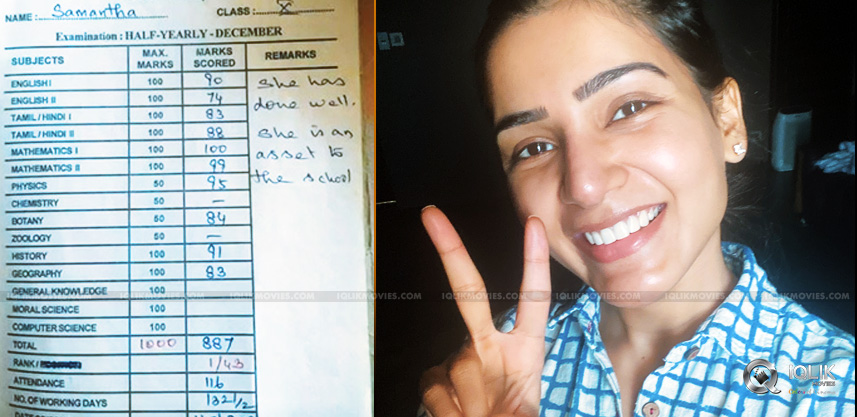 NAME : Samantha CLASS : X
Examination : HALF-YEARLY - DECEMBER
SUBJECTS MAX. MARKS MARKS SCORED REMARKS
ENGLISH I 100 90 She has
ENGLISH II 100 74 done well.
TAMIL / HINDI I 100 83
TAMIL / HINDI II 100 88 She is an
MATHEMATICS I 100 100 asset to
MATHEMATICS II 100 99 the school
PHYSICS 50 95
CHEMISTRY 50 —
BOTANY 50 84
ZOOLOGY 50 —
HISTORY 100 91
GEOGRAPHY 100 83
GENERAL KNOWLEDGE 100
MORAL SCIENCE 100
COMPUTER SCIENCE 100
TOTAL 1000 887
RANK / 1/43
ATTENDANCE 116
NO. OF WORKING DAYS 132/2
IQLIKMOVIES.COM IQLIKMOVIES.COM IQLIKMOVIES.COM IQLIKMOVIES.COM
IQLIK
MOVIES